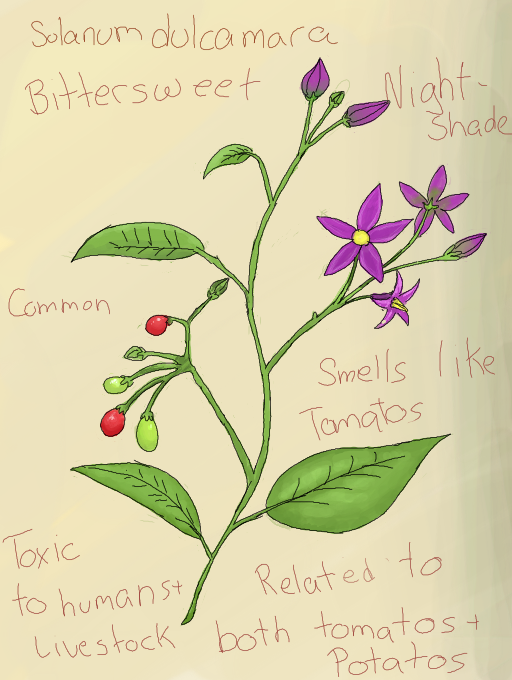 Solanum dulcamara
Bittersweet
Night-
Shade
Common
Smells like
Tomatos
Toxic
to humans+
Livestock
Related to
both tomatos +
Potatos